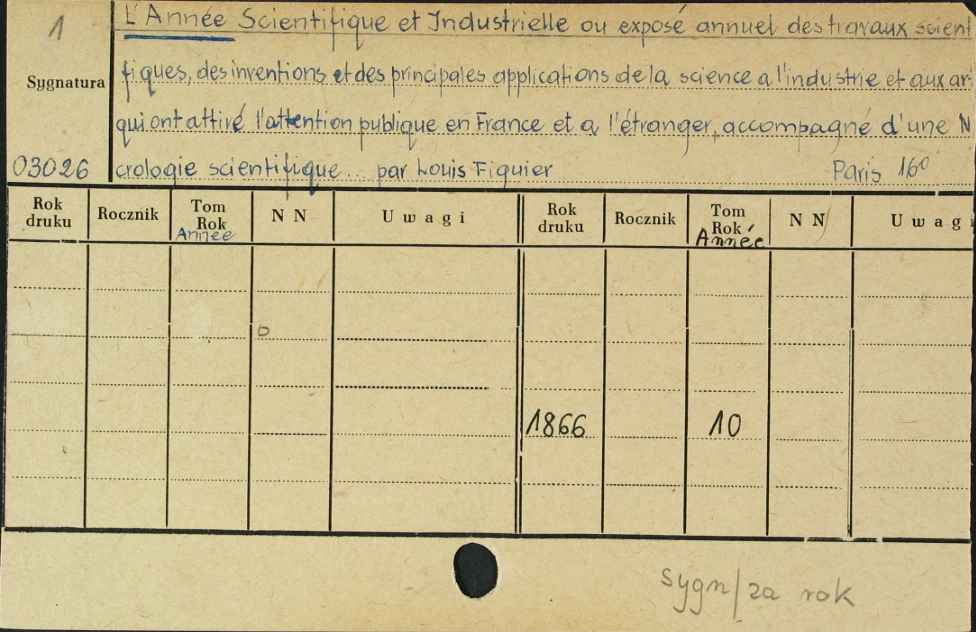 1
L'Année Scientifique et Industrielle ou exposé annuel des travaux scient
Sygnatura
fiques, des inventions et des principales applications de la science a l'industrie et aux ar
qui ont attiré l'attention publique en France et a l'étranger, accompagné d'une N
03026
crologie scientifique... par Louis Figuier Paris 16°
Rok druku Rocznik Tom Rok Année N N Uwagi Rok druku Rocznik Tom Rok Année N N Uwag
1866 10
sygn/za rok